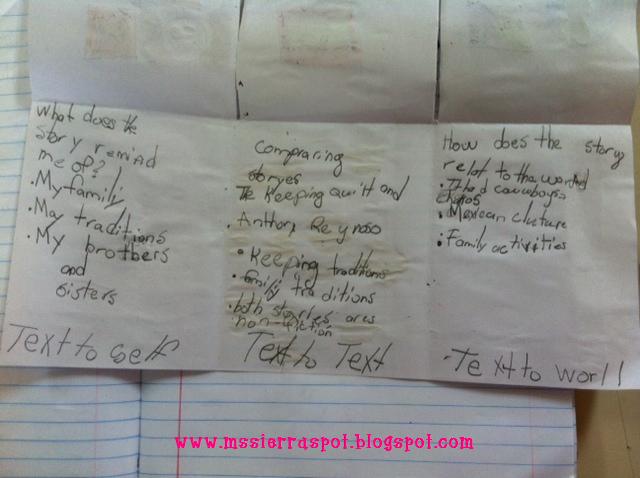 What does the
story remind
me of?
• My family
• My traditions
• My brothers
and
sisters
Text to self
Compraring
storyes
The Keeping Quilt and
• Anthony Reynoso
• Keeping traditions
• family traditions
• both stories are
non-fiction
Text to Text
How does the story
relat to the world
cowboys
• Mexican cluture
• Family activities
Text to world
www.mssierraspot.blogspot.com